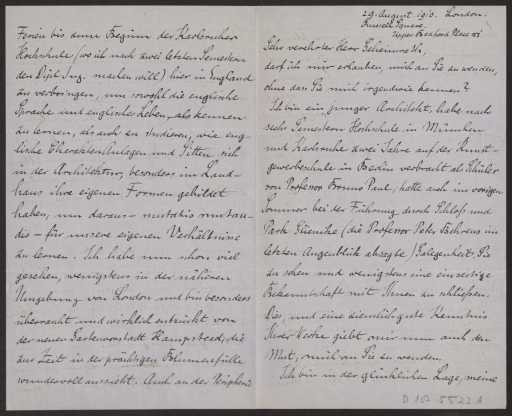 29. August 1910. London.
Russell Square.
Upper Bedford Place 41
Sehr verehrter Herr Geheimrat,
darf ich mir erlauben, mich an Sie zu wenden,
ohne dass Sie mich irgendwie kennen?
Ich bin ein junger Architekt, habe nach
sechs Semestern Hochschule in München
und Karlsruhe zwei Jahre auf der Kunst-
gewerbeschule in Berlin verbracht als Schüler
von Professor Bruno Paul, hatte auch im vorigen
Sommer bei der Führung durch Schloß und
Park Glienicke (die Professor Peter Behrens im
letzten Augenblick absagte) Gelegenheit, Sie
zu sehen und wenigstens eine einseitige
Bekanntschaft mit Ihnen zu schließen.
Die, und eine ziemlich gute Kenntnis
Ihrer Werke giebt mir nun auch den
Mut, mich an Sie zu wenden.
Ich bin in der glücklichen Lage, meine
Ferien bis zum Beginn der Karlsruher
Hochschule (wo ich nach zwei letzten Semestern
den Dipl. Ing. machen will) hier in England
zu verbringen, um sowohl die englische
Sprache und englisches Leben, als kennen
zu lernen, als auch zu studieren, wie eng-
lische Charakteranlagen und Sitten sich
in der Architektur, besonders im Land-
haus ihre eigenen Formen gebildet
haben, um daraus - mutatis mutan-
dis - für unsere eigenen Verhältnisse
zu lernen. Ich habe nun schon viel
gesehen, wenigstens in der näheren
Umgebung von London und bin besonders
überrascht und wirklich entzückt von
der neuen Gartenvorstadt Hampstead, die
zur Zeit in der prächtigen Blumenfülle
wundervoll aussieht. Auch an der Peripherie